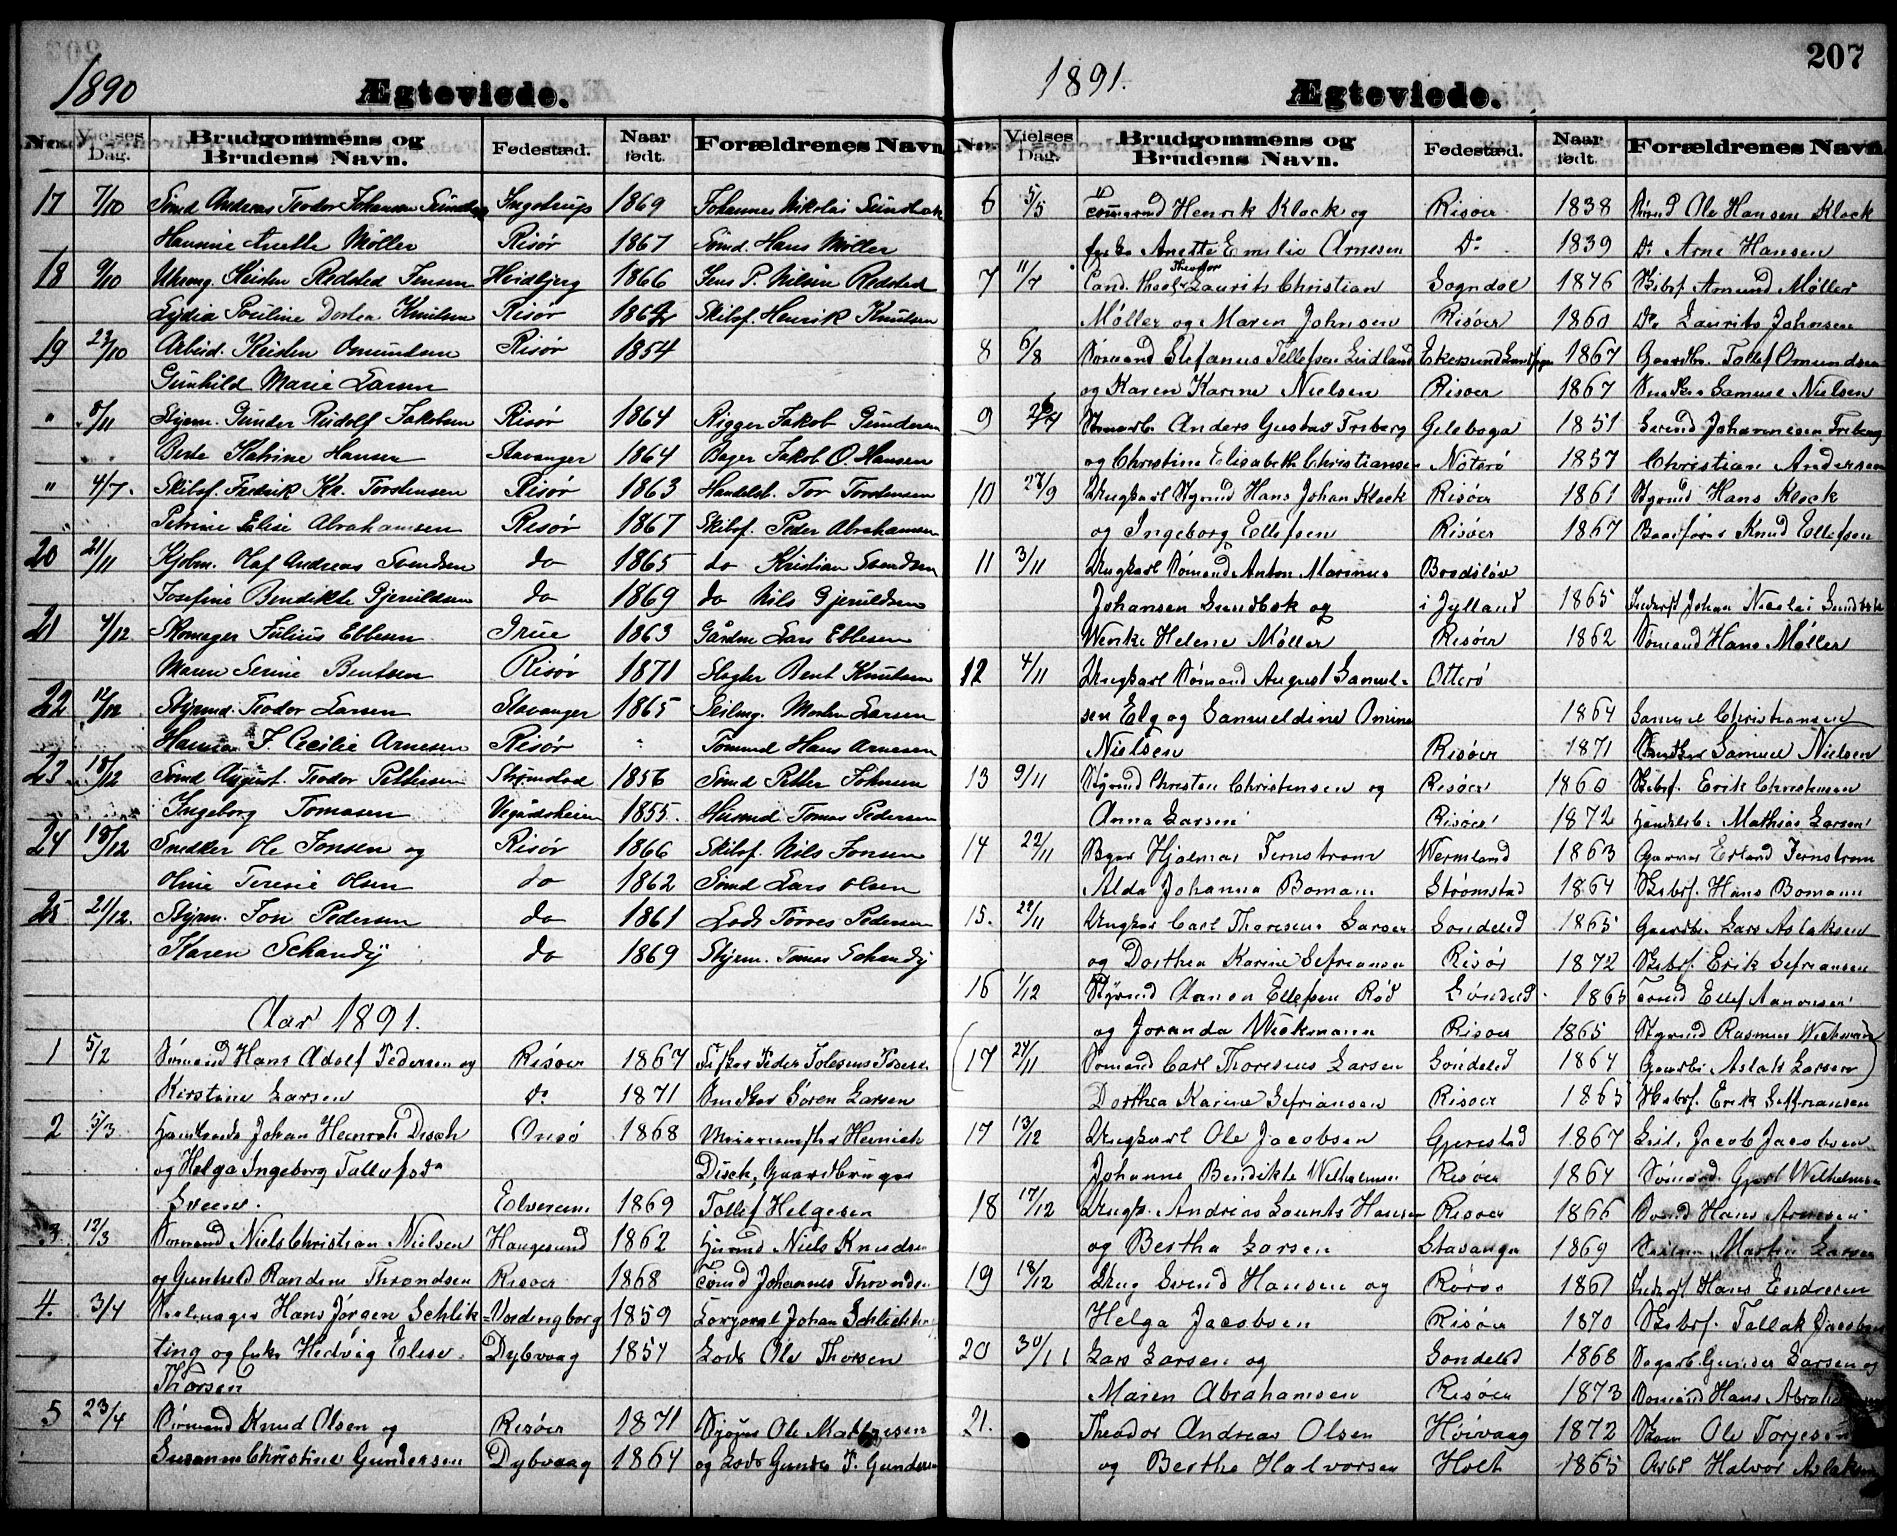 1890
Ægteviede.
No. Vielses Dag. Brudgommens og Brudens Navn. Fødested. Naar født. Forældrenes Navn
17 7/10 Sømd Andreas Teodor Johansen Ingstrup 1869 Johannes Nikolai
Hansine Anette Møller Risør 1867 Sømd. Hans Møller
18 9/10 Kristen Redsted Jensen Heidbjerg 1866 Jens P. Nilsen Redsted
Lydia Pouline Dortea Knutsen Risør Skibsf. Henrik Knutsen
19 23/10 Arbeid. Kristen Omundsen Risør 1854
Gunhild Marie Larsen
" 8/11 Styrm. Gunder Rudolf Jakobsen Risør 1864 Rigger Jakob Gundersen
Berte Katrine Hansen Stavanger 1864 Bager Jakob O. Hansen
" 4/7. Skibsf. Fredrik Kr. Torstensen Risør 1863 Handelsb. Tor Torstensen
Petrine Elise Abrahamsen Risør 1867 Skibsf. Peder Abrahamsen
20 21/11 Kjøbm. Olaf Andreas Svendsen do 1865 do Kristian Svendsen
Josefine Bendikte Gjeruldsen do 1869 do Nils Gjeruldsen
21 4/12 Skomager Julius Ebbesen Grue 1863 Gårdm Lars Ebbesen
Maren Serine Bentsen Risør 1871 Slagter Bent Knutsen
22 12/12 Styrmd. Teodor Larsen Stavanger 1865 Seilmg. Morten Larsen
Hanna F. Cecilie Arnesen Risør " Tømmd Hans Arnesen
23 18/12 Sømd August Teodor Pettersen Strømstad 1856 Sømd Petter Johnsen
Ingeborg Tomasen Vegårdsheien 1855. Husmd Tomas Pedersen
24 18/12 Snedker Ole Jonsen og Risør 1866 Skibsf. Nils Jonsen
Oline Teresie Olsen do 1862 Sømd Lars Olsen
25 21/12. Styrm. Jon Pedersen do 1861 Lods Tørres Pedersen
Karen Schandÿ do 1869 Styrm. Tomas Schandÿ
Aar 1891.
1 5/2 Sømand Hans Adolf Pedersen og Risøer 1867 Peder
Kirstine Larsen do 1871 Søren Larsen
2 5/3 Johan Heinrich Disch Onsø 1868 Heinich
og Helga Ingeborg Tallefsd. Disch, Gaardbruger
Sveen. Elverum 1869 Tallef Helgesen
3 12/3 Sømand Niels Christian Nielsen Haugesund 1862 Husmd Niels Knudsen
og Gunhild Randine Throndsen Risøer 1868 Tømd Johannes Throndsen
4. 3/4 Hans Jørgen Schlik= Vordingborg 1859 Johan Schlichting
ting og Enke Hedvig Elise Dybvaag 1854 Lods Ole Thorsen
Thorsen
5 23/4 Sømand Knud Olsen og Risøer 1871 Ole Mathisen
Susanne Christine Gundersen Dybvaag 1864 og Lods Gunder P. Gundersen
207
1891.
Ægteviede.
No. Vielses Dag. Brudgommens og Brudens Navn. Fødested. Naar født. Forældrenes Navn.
6 5/5 Tømmermd Henrik Klock og Risøer 1838 Sømd Ole Hansen Klock
Anette Emilie Arnesen Do 1839 Do Arne Hansen
7 11/7 Cand. theol. Theodor Laurits Christian Sogndal 1846 Skibsf. Amund Møller
Møller og Maren Johnsen Risøer 1860 Do Laurits Johnsen
8 6/8 Sømand Stefanus Tellefsen Lindland Ekersund 1867 Gaardbr. Tollef Omundsen
og Karen Karine Nielsen Risøer 1867 Snedker Samuel Nielsen
9 Anders Gustav Friberg Gileboga 1851 Johannesen Friberg
og Christine Elisabeth Christiansen Nøterø 1857 Christian Andersen
10 28/9 Ungkarl Styrmd Hans Johan Klock Risøer 1861 Styrmd Hans Klock
og Ingeborg Ellefsen Risøer 1867 Knud Ellefsen
11 3/11 Ungkarl Sømand Anton Marinus Brodsløv
Johansen Sundbek og i Jylland 1865 Inderst Johan Nicolai Sundbek
Wenke Helene Møller Risøer 1862 Sømand Hans Møller
12 4/11 Ungkarl Sømand August Samuel= Otterø
sen Elg og Samueldine Omine 1864 Samuel Christiansen
Nielsen Risøer 1871 Snedker Samuel Nielsen
13 9/11 Styrmd Christen Christensen og Risøer 1860 Skibsf. Erik Christensen
Anna Larsen Risøer 1872 Handelsb. Mathias Larsen
14 22/11 Hjalmar Fernstrøm Wermland 1863 Erland Fernstrøm
Alda Johanna Bomann Strømstad 1864 Skibsf. Hans Bomann
15. 22/11 Ungkar Carl Thoresens Larsen Sondeled 1865 Gaardbr. Lars Aslaksen
og Dorthea Karine Sefriansen Risør 1872 Skibsf. Erik Sefriansen
16 1/12 Styrmd Aanon Ellefsen Rød Søndeled 1863 Tømd Ellef Aanonsen
og Joranda Wickmann Risøer 1865 Styrmd Rasmus Wickmann
(17 24/11 Sømand Carl Thoresens Larsen Sondeled 1864 Gaardbr. Aslak Larsen)
Dorthea Karine Sefriansen Risøer 1865 Skibsf. Erik Seffriansen
17 13/12 Ungkarl Ole Jacobsen Gjerestad 1867 Jacob Jacobsen
Johanne Bendikte Wilhelmsen Risøer 1864 Sømand Gjert Wilhelmsen
18 17/12 Ungk. Andreas Laurits Hansen Risøer 1866 Hans Arnesen
og Bertha Larsen Stavanger 1869 Martin Larsen
19 18/12 Ung Svend Hansen og Røros 1861 Inderst Hans Endresen
Helga Jacobsen Risøer 1870 Skibsf. Tallak Jacobsen
20 30/11 Lars Larsen og Sondeled 1868 Sagarb. Gunder Larsen og
Maren Abrahamsen Risøer 1873 Sømand Hans
21. Theodor Andreas Olsen Høivaag 1872 Ole Torjesen
og Berthe Halvorsen Holt 1865 Arbd Halvor Aslaksen